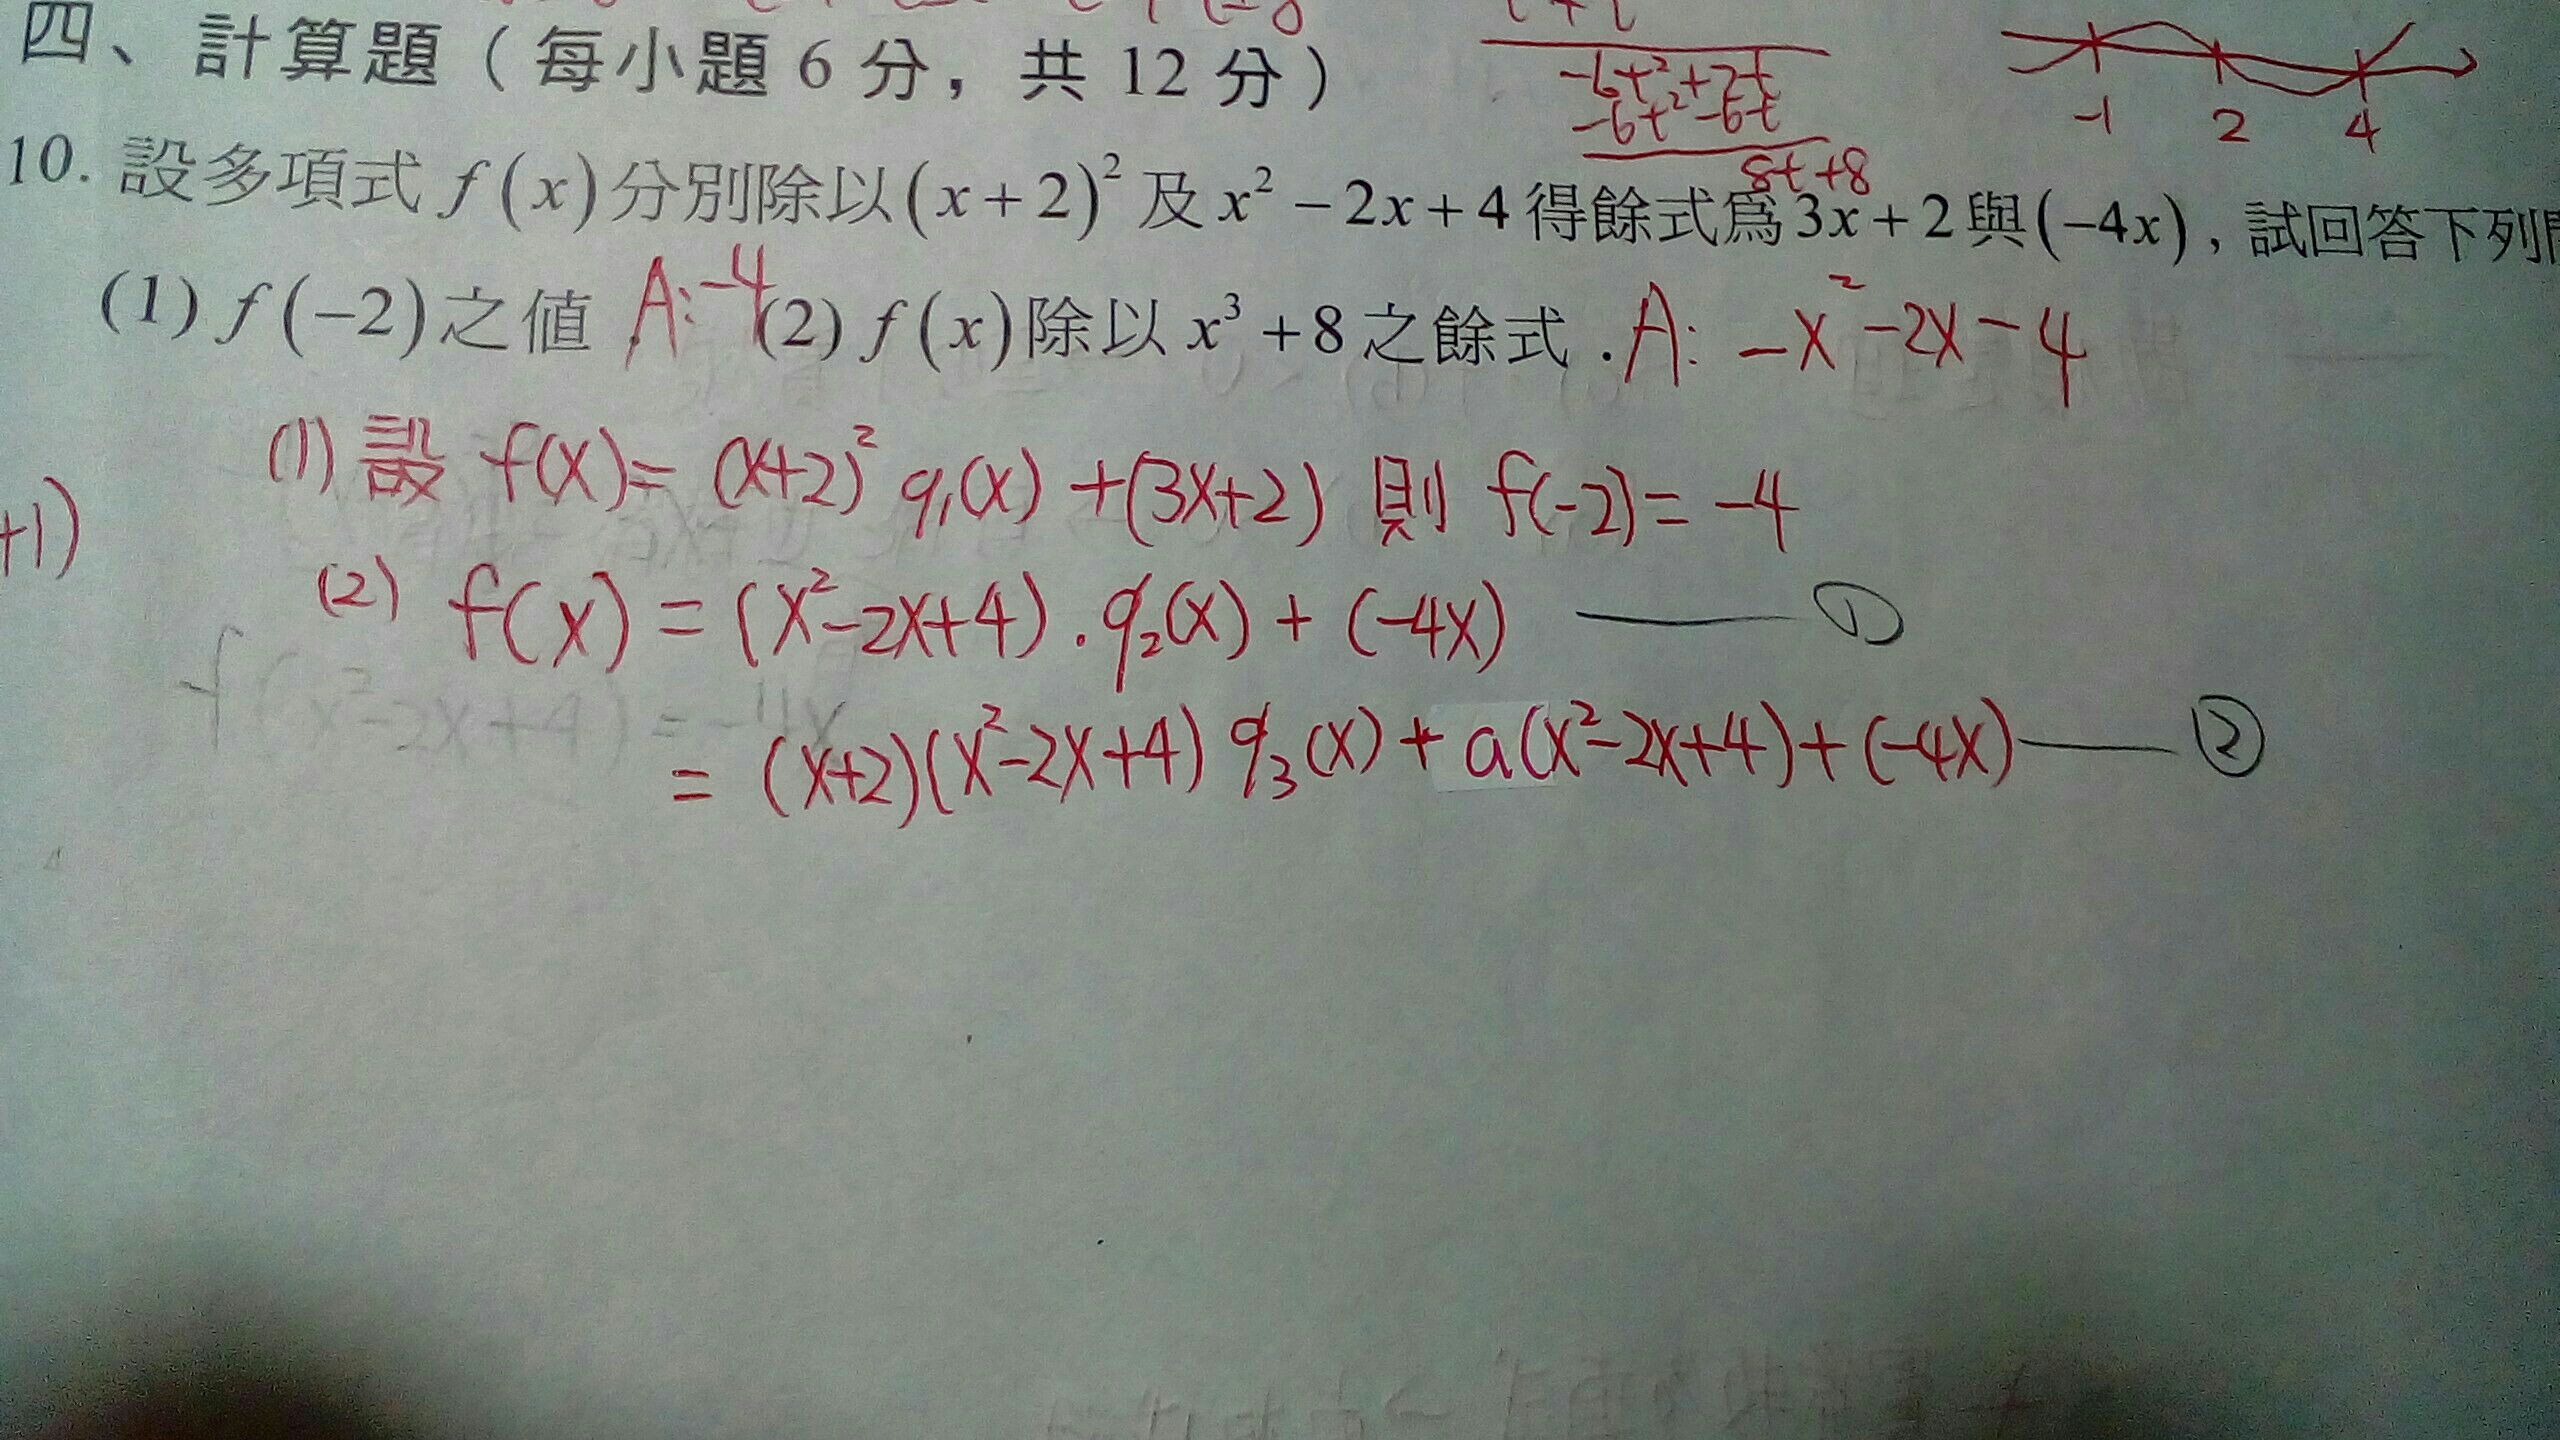 四、計算題（每小題 6 分，共 12 分）
-6t²+2t
-6t²-6t
8t+8
-1 2 4
10. 設多項式 f(x) 分別除以 (x+2)² 及 x²-2x+4 得餘式為 3x+2 與 (-4x)，試回答下列
(1) f(-2) 之值 A:-4 (2) f(x) 除以 x³+8 之餘式. A: -x²-2x-4
(1) 設 f(x)= (x+2)² q₁(x) +(3x+2) 則 f(-2)= -4
+1)
(2) f(x) = (x²-2x+4)．q₂(x) + (-4x) —— ①
f(x²-2x+4) = -4x
= (x+2)(x²-2x+4) q₃(x) + a(x²-2x+4)+(-4x) —— ②